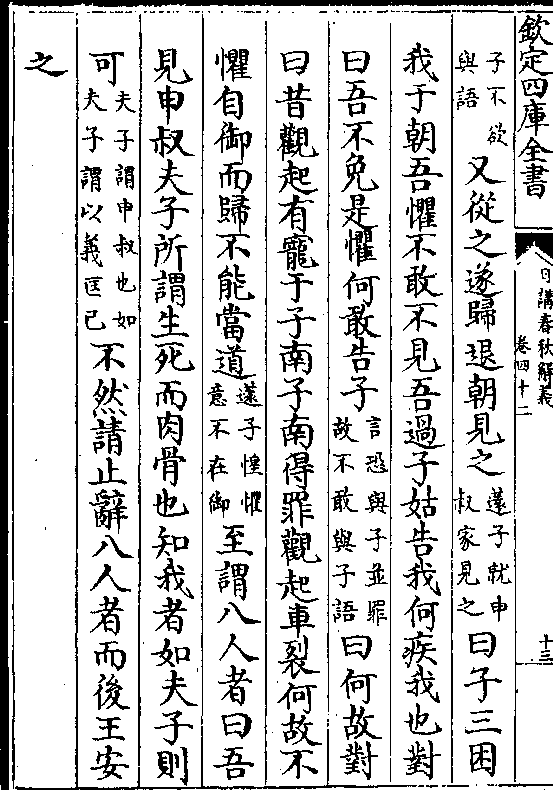 欽定四庫全書
日講春秋解義
卷四十二
十三
子不欲
與語
又從之遂歸退朝見之
薳子就申
叔家見之
曰子三困
我于朝吾懼不敢不見吾過子姑告我何疾我也對
曰吾不免是懼何敢告子
言恐與子並罪
故不敢與子語
曰何故對
曰昔觀起有寵于子南子南得罪觀起車裂何故不
懼自御而歸不能當道
薳子惶懼
意不在御
至謂八人者曰吾
見申叔夫子所謂生死而肉骨也知我者如夫子則
可
夫子謂申叔也如
夫子謂以義匡己
不然請止辭八人者而後王安
之